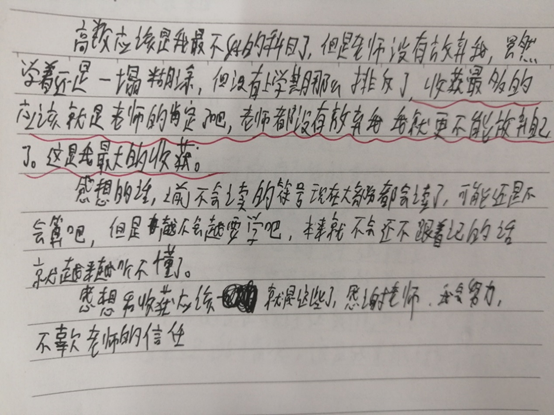 高数应该是我最不好的科目了，但是老师没有放弃我，虽然
学着还是一塌糊涂，但没有上学期那么排斥了，收获最多的
应该就是老师的肯定了吧，老师都没有放弃我 我就更不能放弃自己
了。这是我最大的收获。
感想的话，以前不会读的符号现在大部分都会读了，可能还是不
会算吧，但是越不会越要学吧，本来就不会还不跟着记的话
就越来越听不懂了。
感想和收获应该就是这些了，感谢老师．我会努力，
不辜欠老师的信任